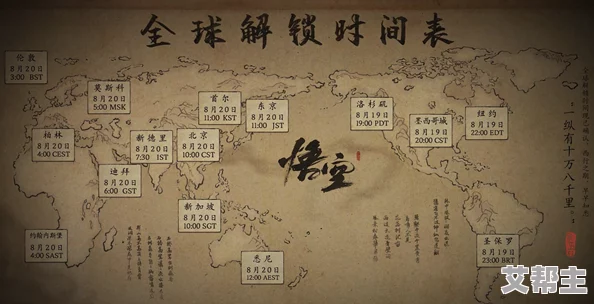 全球解锁时间表
伦敦
8月20日
3:00 BST
莫斯科
8月20日
5:00 MSK
首尔
8月20日
11:00 KST
东京
8月20日
11:00 JST
洛杉矶
8月19日
19:00 PDT
墨西哥城
8月19日
20:00 CST
纽约
8月19日
22:00 EDT
柏林
8月20日
4:00 CEST
新德里
8月20日
7:30 IST
北京
8月20日
10:00 CST
迪拜
8月20日
6:00 GST
悟空
新加坡
8月20日
10:00 SGT
约翰内斯堡
8月20日
4:00 SAST
悉尼
8月20日
12:00 AEST
圣保罗
8月19日
23:00 BRT
纵有十万八千里
艾帮主